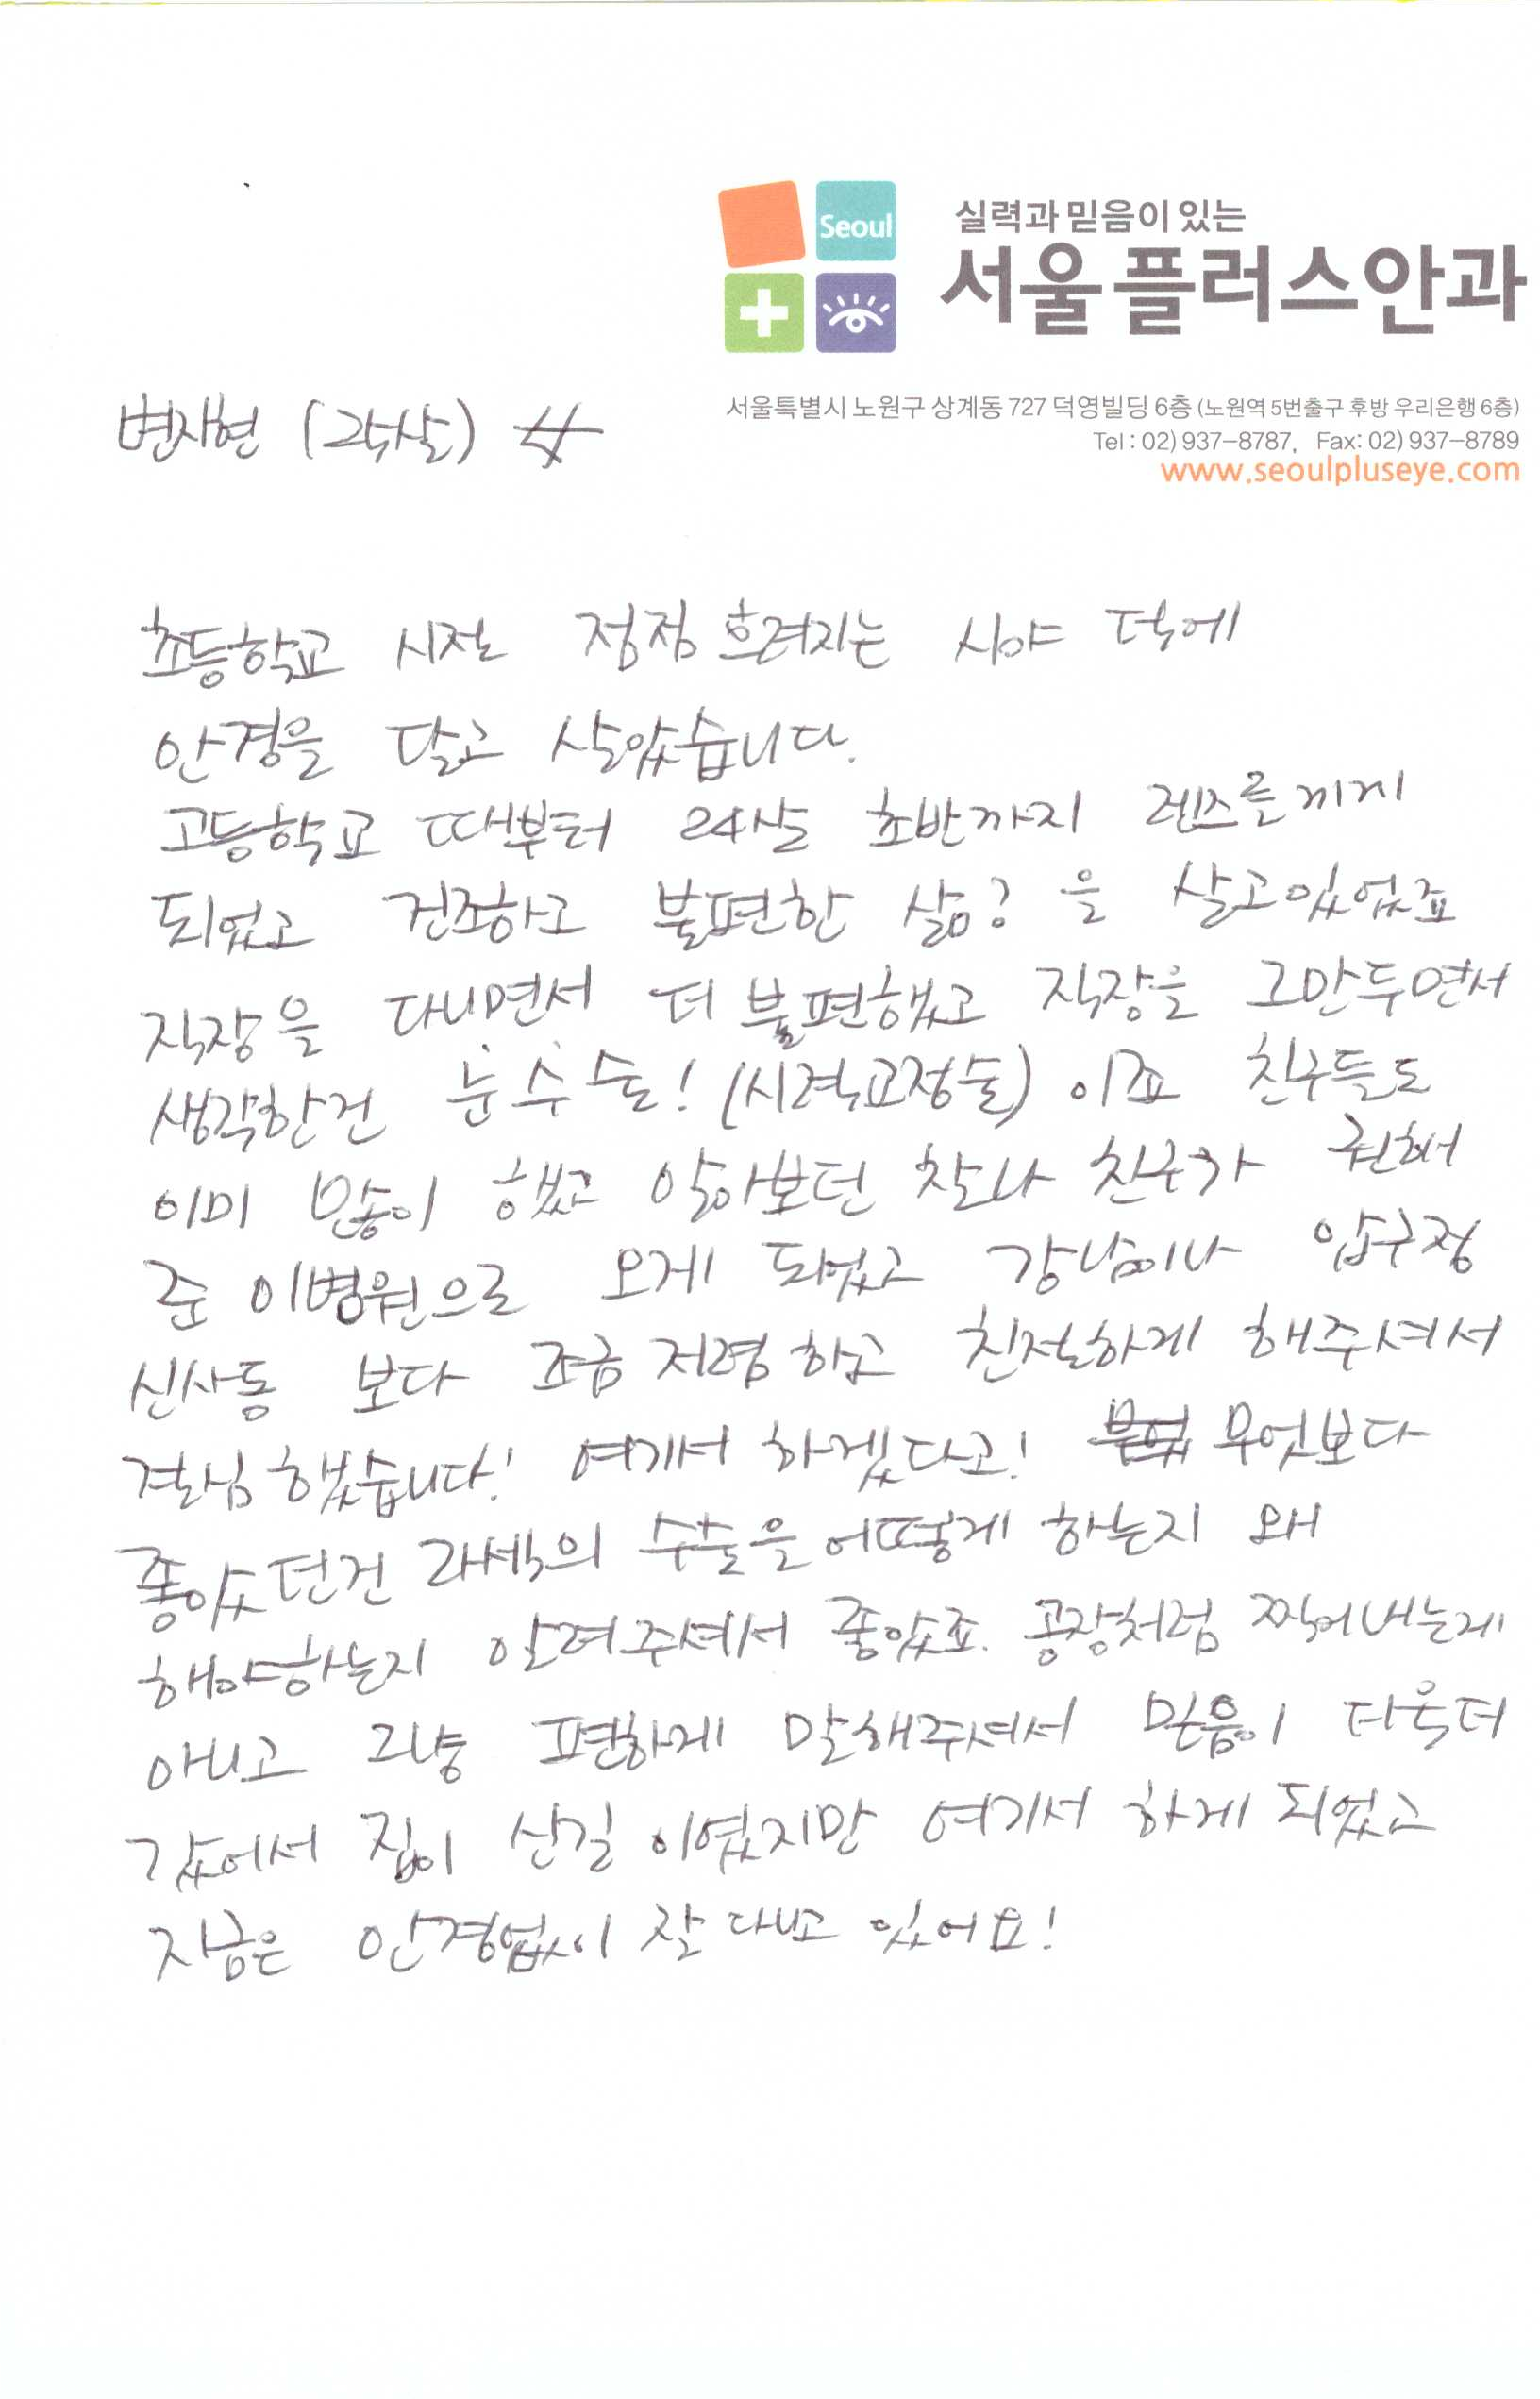 Seoul
실력과 믿음이 있는
서울플러스안과
서울특별시 노원구 상계동 727 덕영빌딩 6층 (노원역 5번출구 후방 우리은행 6층)
Tel : 02) 937-8787, Fax: 02) 937-8789
www.seoulpluseye.com
변재현 (24살)
초등학교 시절 점점 흐려지는 시야 덕에
안경을 달고 살았습니다.
고등학교 때부터 24살 초반까지 렌즈를 끼게
되었고 건조하고 불편한 삶? 을 살고있었죠
직장을 다니면서 더 불편했고 직장을 그만두면서
생각한건 눈수술! (시력교정술) 이죠 친구들도
이미 많이 했고 알아보던 찰나 친구가 권해
준 이병원으로 오게 되었고 강남이나 압구정
신사동 보다 조금 저렴하고 친절하게 해주셔서
결심 했습니다! 여기서 하겠다고! 무엇보다
좋았던건 라섹의 수술을 어떻게 하는지 왜
해야하는지 알려주셔서 좋았죠. 공장처럼 찍어내는게
아니고 그냥 편하게 말해주셔서 믿음이 더욱더
갔어서 집이 신길 이였지만 여기서 하게 되었고
지금은 안경없이 잘 다니고 있어요!